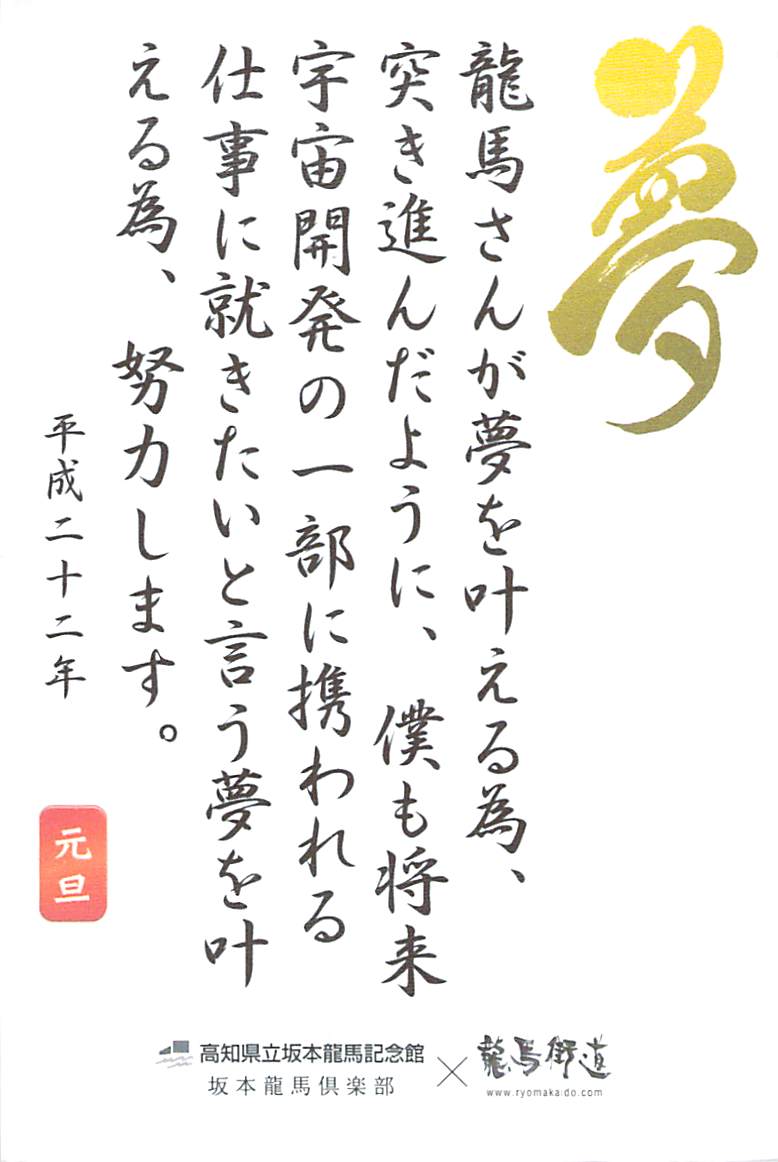 夢
龍馬さんが夢を叶える為、
突き進んだように、僕も将来
宇宙開発の一部に携われる
仕事に就きたいと言う夢を叶
える為、努力します。
平成二十二年
元旦
高知県立坂本龍馬記念館
坂本龍馬倶楽部
×
龍馬街道
www.ryomakaido.com